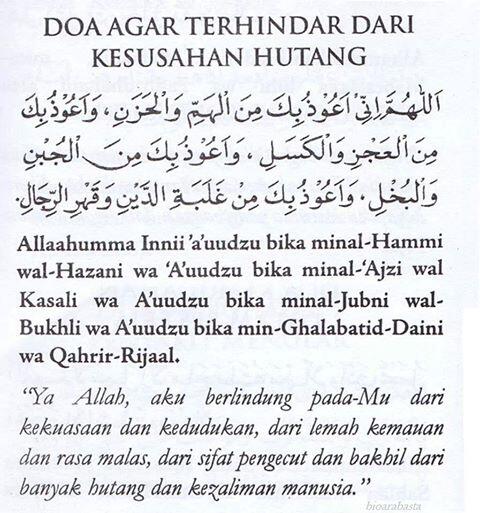 DOA AGAR TERHINDAR DARI
KESUSAHAN HUTANG
اَللّٰهُمَّ اِنِّيْ اَعُوْذُ بِكَ مِنَ الْهَمِّ وَالْحَزَنِ، وَاَعُوْذُ بِكَ
مِنَ الْعَجْزِ وَالْكَسَلِ، وَاَعُوْذُ بِكَ مِنَ الْجُبْنِ
وَالْبُخْلِ، وَاَعُوْذُ بِكَ مِنْ غَلَبَةِ الدَّيْنِ وَقَهْرِ الرِّجَالِ.
Allaahumma Innii 'a'uudzu bika minal-Hammi
wal-Hazani wa 'A'uudzu bika minal-'Ajzi wal
Kasali wa A'uudzu bika minal-Jubni wal-
Bukhli wa A'uudzu bika min-Ghalabatid-Daini
wa Qahrir-Rijaal.
"Ya Allah, aku berlindung pada-Mu dari
kekuasaan dan kedudukan, dari lemah kemauan
dan rasa malas, dari sifat pengecut dan bakhil dari
banyak hutang dan kezaliman manusia."
bioarabasta